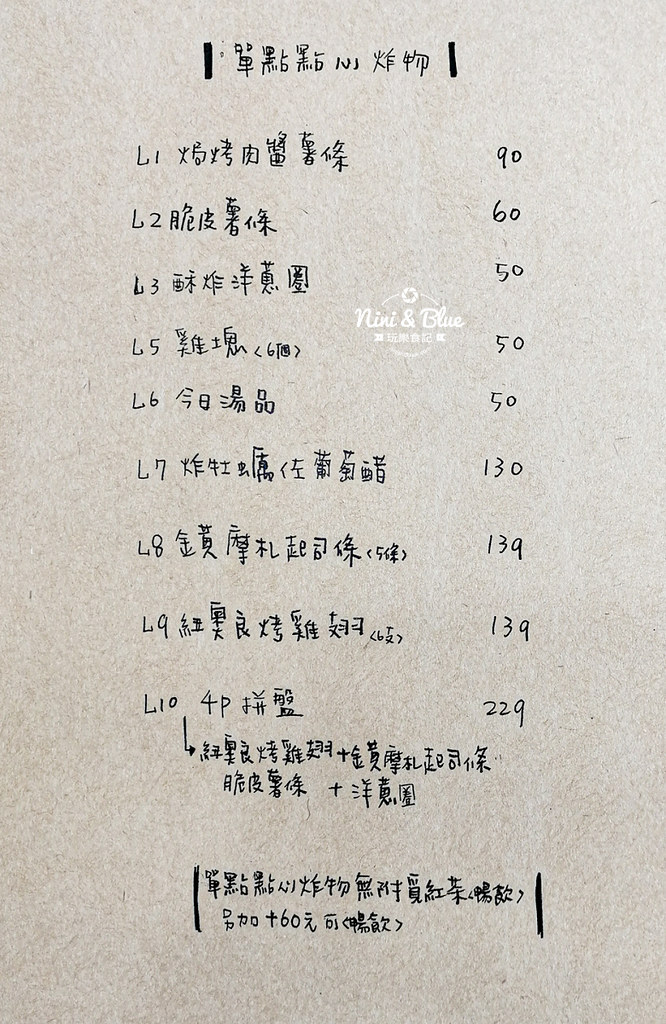 單點點心炸物
L1 焗烤肉醬薯條 90
L2 脆皮薯條 60
L3 酥炸洋蔥圈 50
Nini & Blue
玩樂食記
L5 雞塊<6個> 50
L6 今日湯品 50
L7 炸牡蠣佐葡萄醋 130
L8 金黃摩札起司條<5條> 139
L9 紐奧良烤雞翅<6支> 139
L10 4P拼盤 229
紐奧良烤雞翅+金黃摩札起司條
脆皮薯條 + 洋蔥圈
單點點心炸物無附 紅茶<暢飲>
另加+60元可<暢飲>